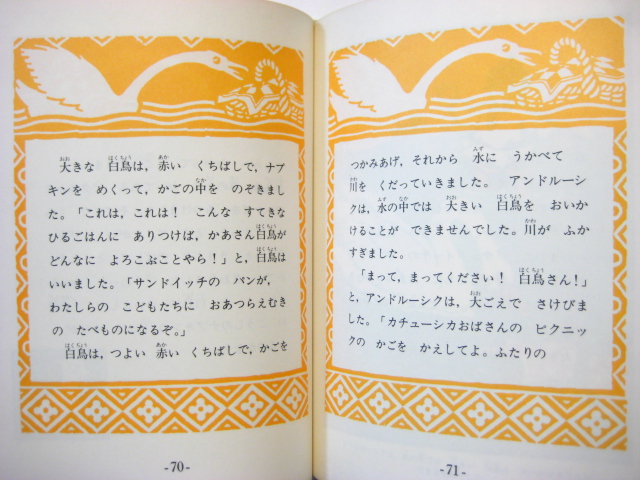 大きな 白鳥は，赤い くちばしで，ナプ
キンを めくって，かごの中を のぞきまし
た。「これは，これは！ こんな すてきな
ひるごはんに ありつけば，かあさん白鳥が
どんなに よろこぶことやら！」と，白鳥は
いいました。「サンドイッチの パンが，
わたしらの こどもたちに おあつらえむき
の たべものになるぞ。」
白鳥は，つよい 赤い くちばしで，かごを
-70-
つかみあげ，それから 水に うかべて
川を くだっていきました。 アンドルーシ
クは，水の中では 大きい 白鳥を おいか
けることが できませんでした。川が ふか
すぎました。
「まって，まってください！ 白鳥さん！」
と，アンドルーシクは，大ごえで さけびま
した。「カチューシカおばさんの ピクニッ
クの かごを かえしてよ。ふたりの
-71-